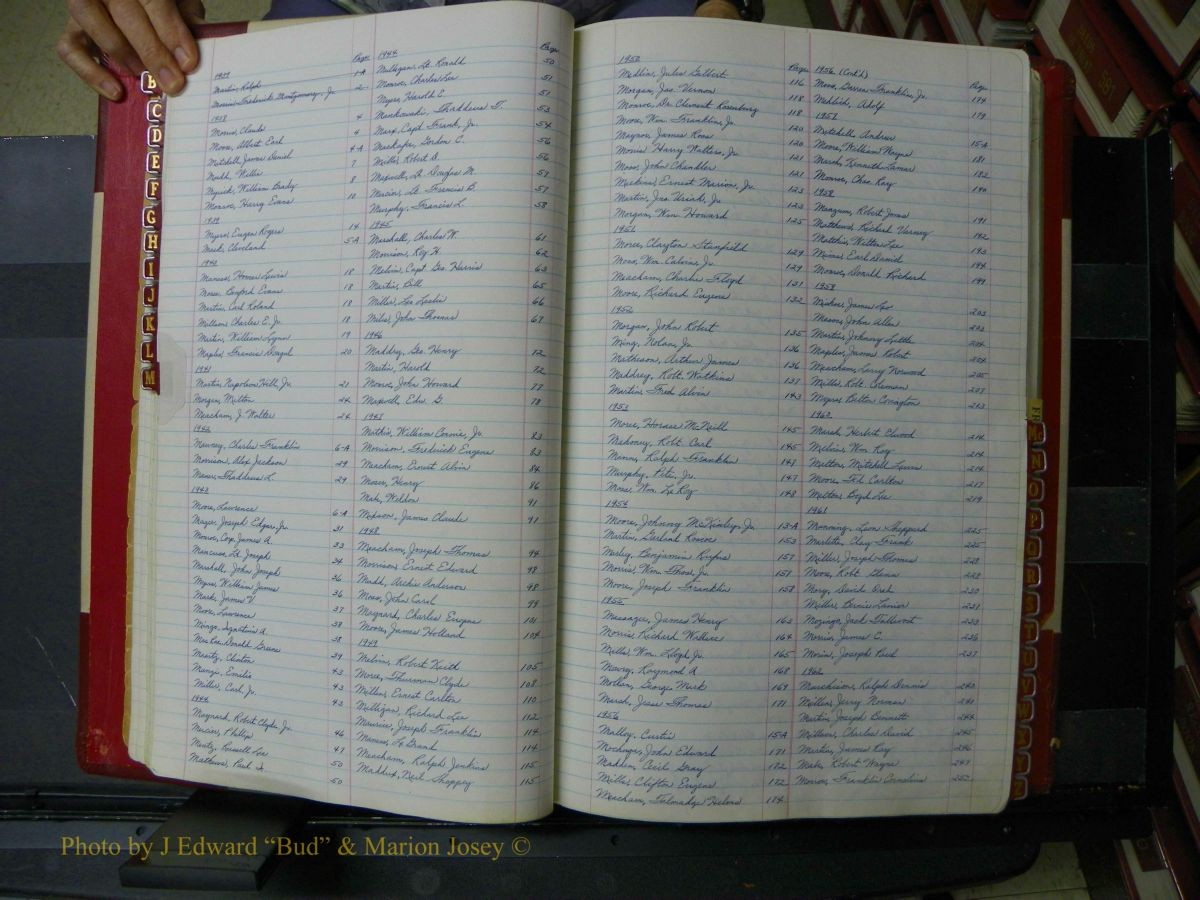 B
C
D
E
F
G
H
I
J
K
L
M
1937
Page
Martin, Ralph 1-A
Morris, Frederick Montgomery, Jr. 2
1938
Morris, Claude 4
Moore, Albert Earl 4
Mitchell, James Daniel 4-A
Mudd, Willie 7
Myrick, William Brady 8
Monroe, Harry Evans 10
1939
Myers, Eugen Rogers 14
Mack, Cleveland 5A
Maness, Homer Lewis 18
Moser, Buyford Evans 18
Martin, Carl Roland 18
Millson, Charles E. Jr. 18
Martin, William Lynn 19
Maples, Francis 20
1941
Martin, Napoleon Hill, Jr. 21
Morgan, Milton 24
Meacham, J. Walter 24
1942
Charles Franklin 6-A
Morrison, Alex Jackson 29
Thaddeus L. 29
1943
Moore, Lawrence 6-A
Mayer, Joseph Edgar, Jr. 31
Monroe, Corp. James A. 33
Mancuso, Lt. Joseph 34
Marshall, John Joseph 36
Myers, William James 36
Marks, James V. 37
Moore, Lawrence 38
Mingo, Ignatius A. 38
MacRae, Donald Greene 39
Clinton 43
Emilio 43
Miller, Carl, Jr. 43
1944
Maynard, Robert Clyde, Jr. 46
Mercier, Phillip 47
Russell Lee 50
Mathews, Paul Jr. 50
1944
Page
Mulligan, Lt. Ronald 50
Monroe, Charles Lee 51
Myers, Harold E. 51
Mankowski, Thaddeus T. 53
Marx, Capt. Frank, Jr. 54
Mackafee, Gordon C. 56
Miller, Robert B. 56
Maxwell, Lt. Douglas M. 57
Mercier, Lt. Francis B. 57
Murphy, Francis L. 58
1945
Marshall, Charles W. 61
Morrison, Roy H. 62
Melvin, Capt. Geo. Harris 63
Martin, Bill 65
Miller, Leo Leslie 66
Miles, John Thomas 67
1946
Maddrey, Geo. Henry 72
Martin, Harold 72
Moore, John Howard 77
Maxwell, Edw. G. 78
1947
Mathis, William Connie, Jr. 83
Morrison, Frederick Eugene 83
Meacham, Ernest Alvin 84
Moser, Henry 86
Weldon 91
James Claude 91
1948
Meacham, Joseph Thomas 94
Morrison, Ernest Edward 98
Mudd, Archie Anderson 98
Moses, John Carol 99
Maynard, Charles Eugene 101
Moore, James Holland 104
1949
Melvin, Robert Keith 105
Morse, Thurman Clyde 108
Miller, Ernest Carlton 110
Milligan, Richard Lee 112
Maurice, Joseph Franklin 114
LeGrand 114
Meacham, Ralph Jenkins 115
Maddux, Neil Sheppey 115
1950
Page
Medlin, Jules Gilbert 116
Morgan, Jas. Vernon 118
Monroe, Dr. Clement Rosenburg 118
Moore, Wm. Franklin, Jr. 120
Maynor, James Ross 120
Morris, Harry Watters, Jr. 121
Moser, John Chandler 121
Ernest Marion, Jr. 123
Martin, Jno. Uriah, Jr. 123
Morgan, Wm. Howard 125
1951
Morse, Clayton Stanfield 129
Wm. Calvin, Jr. 129
Meacham, Charlie Floyd 131
Moore, Richard Eugene 132
1952
Morgan, John Robert 135
Ming, Nolan, Jr. 136
Matheson, Arthur James 136
Maddrey, Robt. Watkins 137
Martin, Fred Alvin 143
1953
Morse, Horace McNeill 145
Mahoney, Robt. Carl 145
Ralph Franklin 147
Murphy, Peter, Jr. 147
Morse, Wm. Le Roy 148
1954
Moore, Johnny McKinley, Jr. 13-A
Martin, Garland Roscoe 153
Benjamin Rufus 157
Morris, Wm. Thos., Jr. 157
Moore, Joseph Franklin 158
1955
Massagee, James Henry 163
Morris, Richard Wallace 164
Miller, Wm. Lloyd, Jr. 165
Raymond A. 168
Morton, George Mark 169
Marsh, Jesse Thomas 171
1956
Malloy, Curtis 15-A
John Edward 171
Madden, Cecil Gray 172
Miller, Clifton Eugene 172
Meacham, Talmadge Nelson 174
1956 (Cont'd)
Page
Moss, Darren Franklin, Jr. 174
Adolf 179
1957
Mitchell, Andrew 15-A
Moore, William Wayne 181
Marsh, Kenneth Lamar 182
Monroe, Chas. Ray 190
1958
Mangum, Robert Jones 191
Matthews, Richard Varney 192
Matthis, Walter Lee 193
Earl David 194
Monroe, Donald Richard 199
1959
James Leo 203
Mason, John Allen 203
Martin, Johnny Little 204
Maples, James Robert 204
Meacham, Larry Norwood 205
Miller, Robt. Coleman 207
Myers, Belton Covington 213
1960
Marsh, Herbert Elwood 214
Melvin, Wm. Ray 214
Melton, Mitchell James 214
Moore, Ted Carlton 217
Melton, Boyd Lee 219
1961
Manning, Leon Sheppard 225
Marlette, Clay Frank 225
Miller, Joseph Thomas 228
Moore, Robt. Glenn 228
David 230
Miller, Bernie Lanier 231
Mozingo, Jack Tullivert 233
Morris, James C. 236
Morin, Joseph Paul 237
1962
Murchison, Ralph Dennis 240
Miller, Jerry Norman 241
Martin, Joseph Bennett 244
Millson, Charles David 245
Martin, James Ray 246
Robert Wayne 247
Monroe, Franklin Cornelius 252
M
N
O
P
Q
R
S
T
Photo by J Edward “Bud” & Marion Josey ©